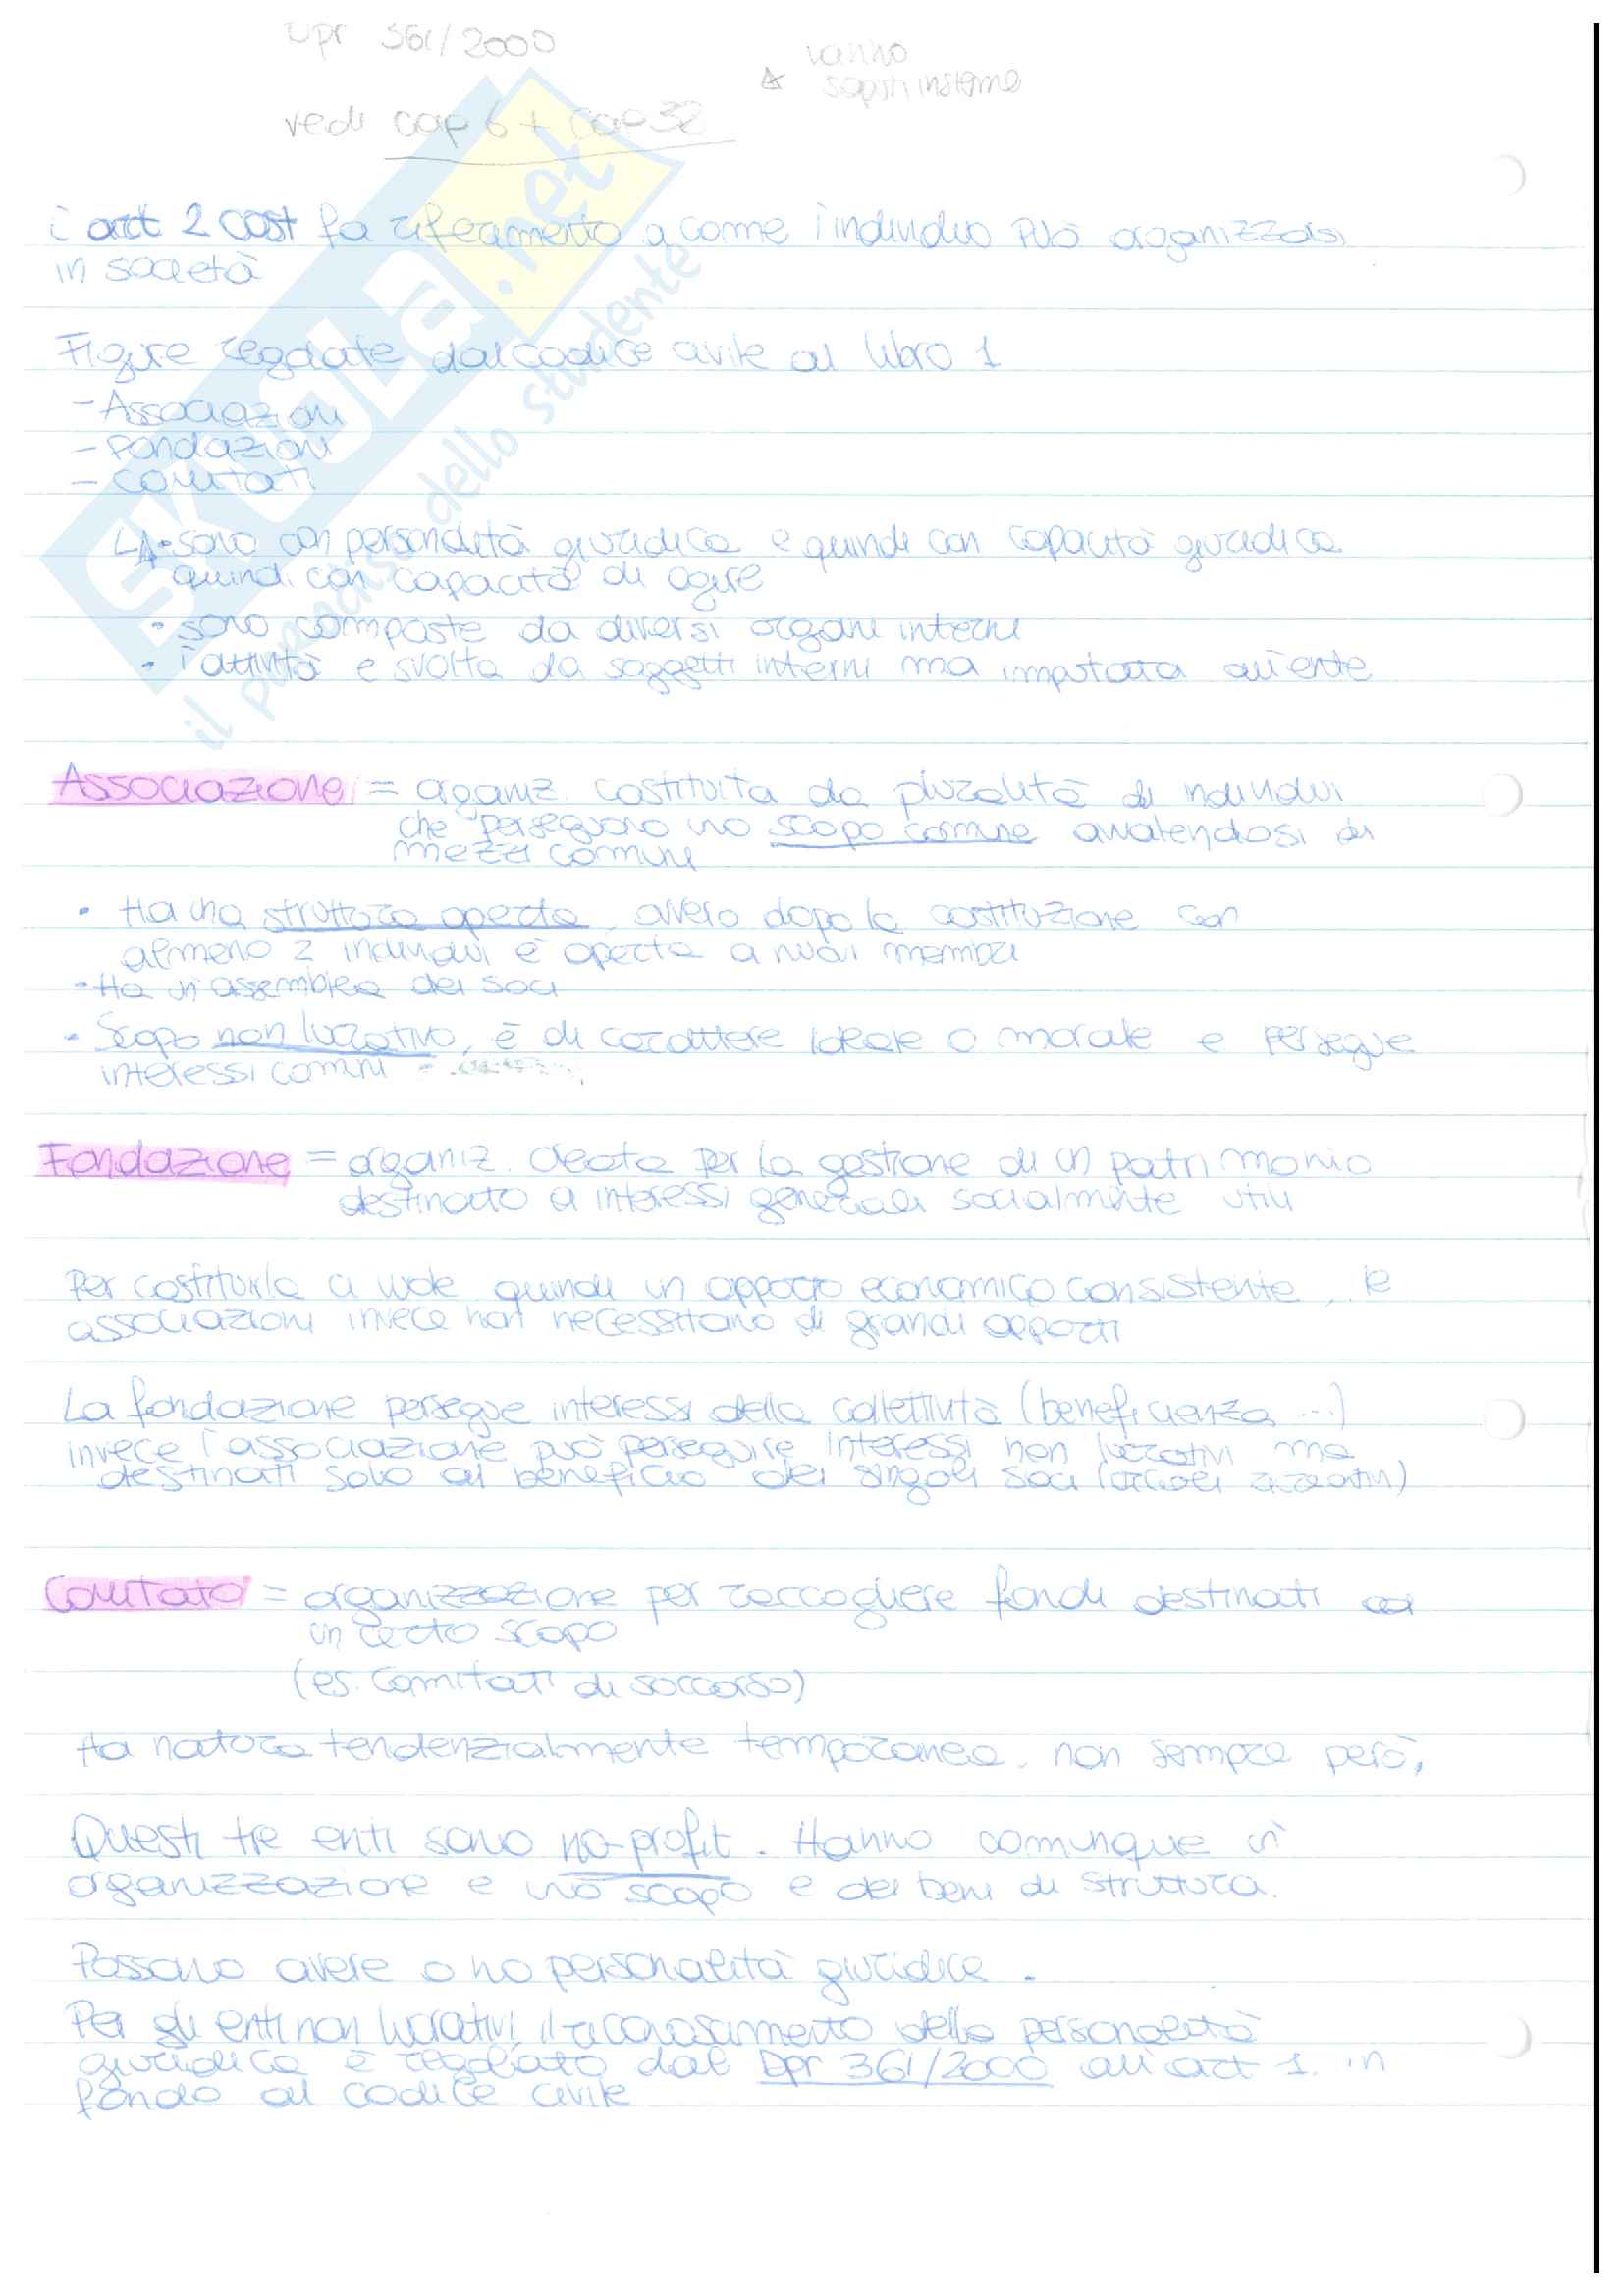 Dpr 361/2000
vanno
saputi insieme
vedi cap 6 + cap 32
l'art 2 cost fa riferimento a come l'individuo può organizzarsi
in società
Figure regolate dal codice civile al libro 1
- Associazioni
- Fondazioni
- Comitati
• sono con personalità giuridica e quindi con capacità giuridica
quindi con capacità di agire
• sono composte da diversi organi interni
• l'attività è svolta da soggetti interni ma imputata all'ente
Associazione = organiz. costituita da pluralità di individui
che perseguono uno scopo comune avvalendosi di
mezzi comuni
• Ha una struttura aperta, ovvero dopo la costituzione con
almeno 2 individui è aperta a nuovi membri
• Ha un'assemblea dei soci
• Scopo non lucrativo, è di carattere ideale o morale e persegue
interessi comuni
Fondazione = organiz. creata per la gestione di un patrimonio
destinato a interessi generali socialmente utili
Per costituirla ci vuole quindi un apporto economico consistente, le
associazioni invece non necessitano di grandi apporti
La fondazione persegue interessi della collettività (beneficienza ...)
invece l'associazione può perseguire interessi non lucrativi ma
destinati solo al beneficio dei singoli soci (circoli ricreativi)
Comitato = organizzazione per raccogliere fondi destinati ad
un certo scopo
(es. Comitati di soccorso)
Ha natura tendenzialmente temporanea, non sempre però,
Questi tre enti sono no-profit. Hanno comunque un'
organizzazione e uno scopo e dei beni di struttura.
Possono avere o no personalità giuridica.
Per gli enti non lucrativi, il riconoscimento della personalità
giuridica è regolato dal Dpr 361/2000 all'art 1. in
fondo al codice civile
SKUOLA.net
il paradiso dello studente